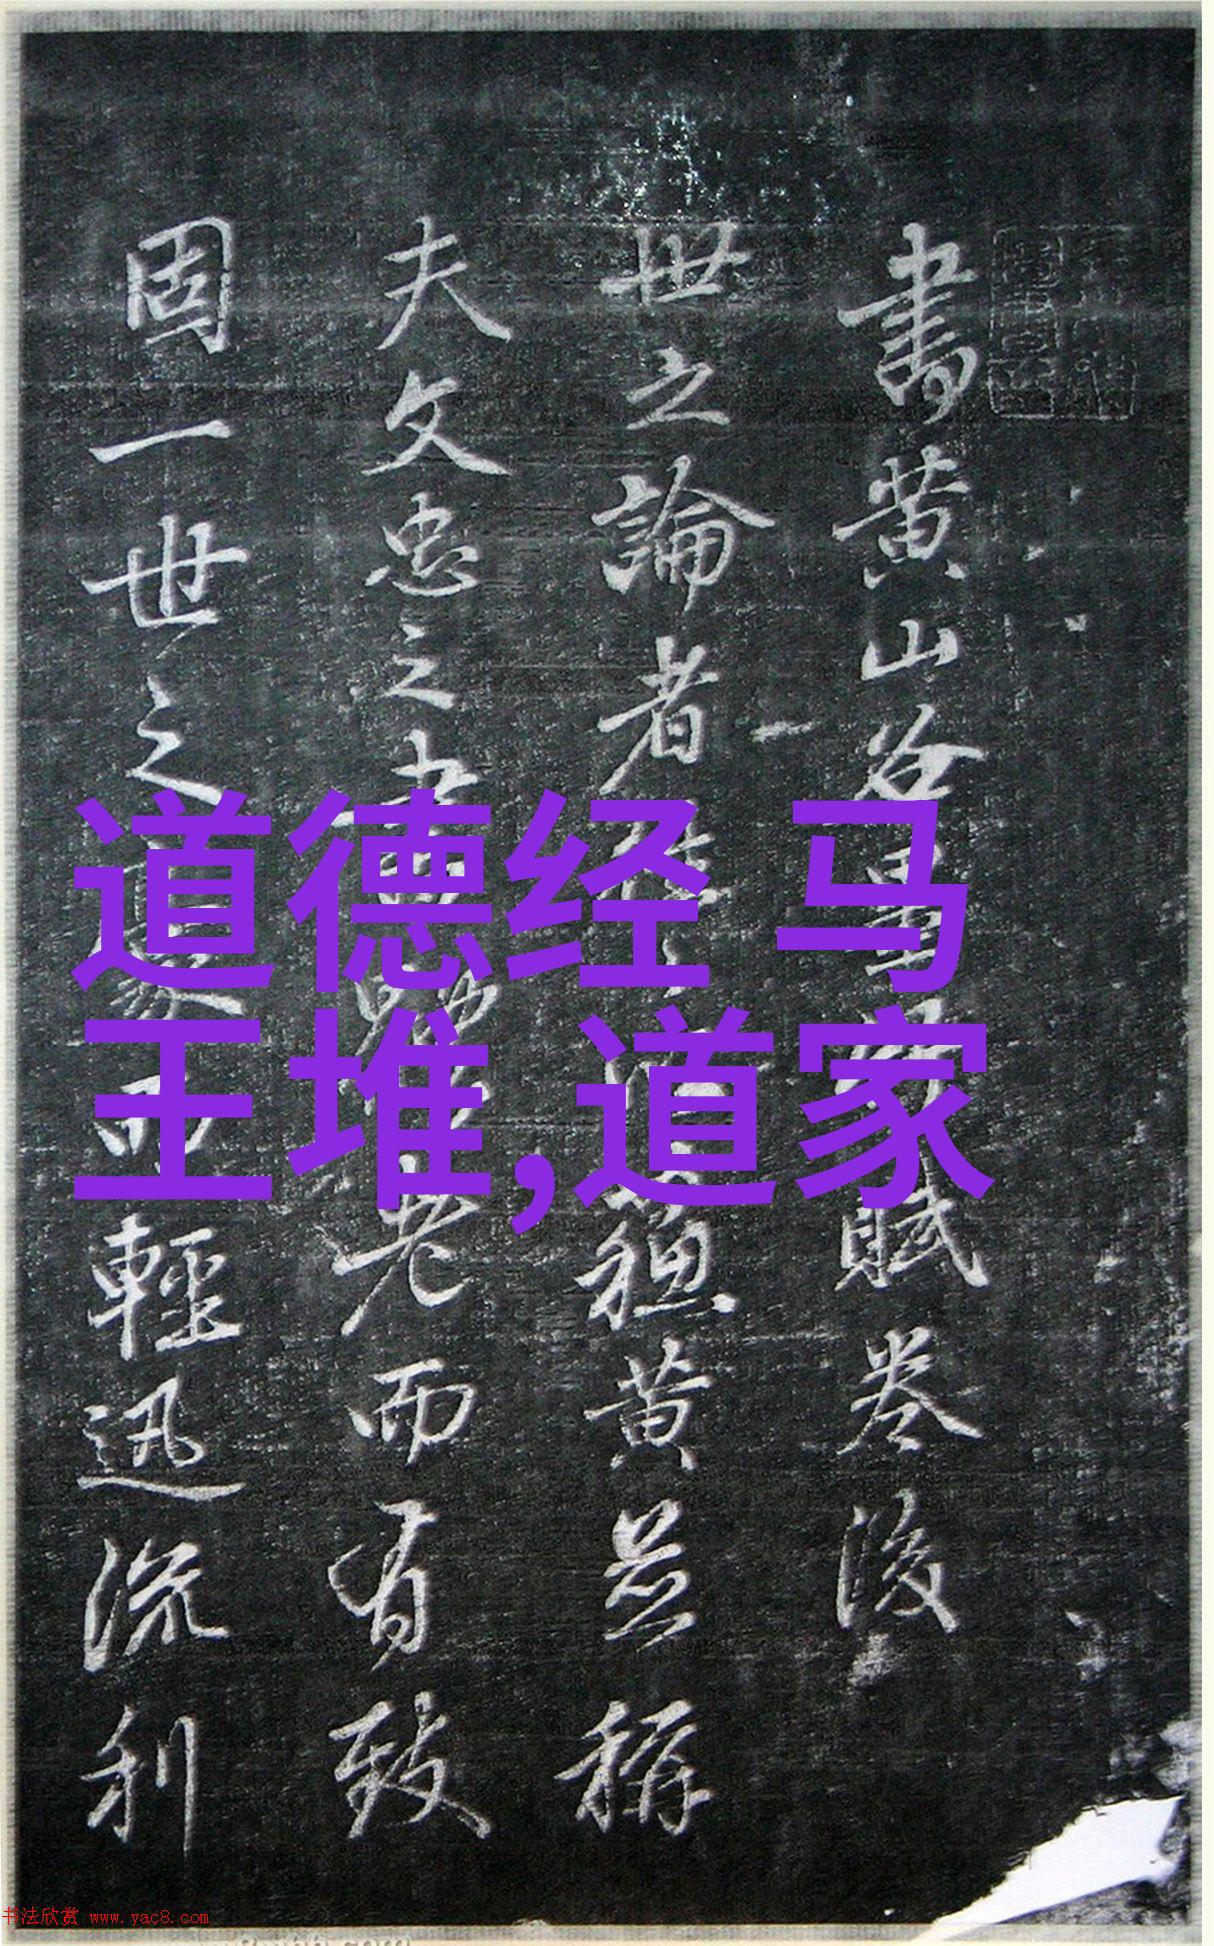 書黄山谷墨竹賦卷後
世之論者
穪黄並稱
夫文忠之書
老而有致
固一世之
家而輕迅流利
道德经 马
王堆,道家
书法欣赏 www.yac8.com